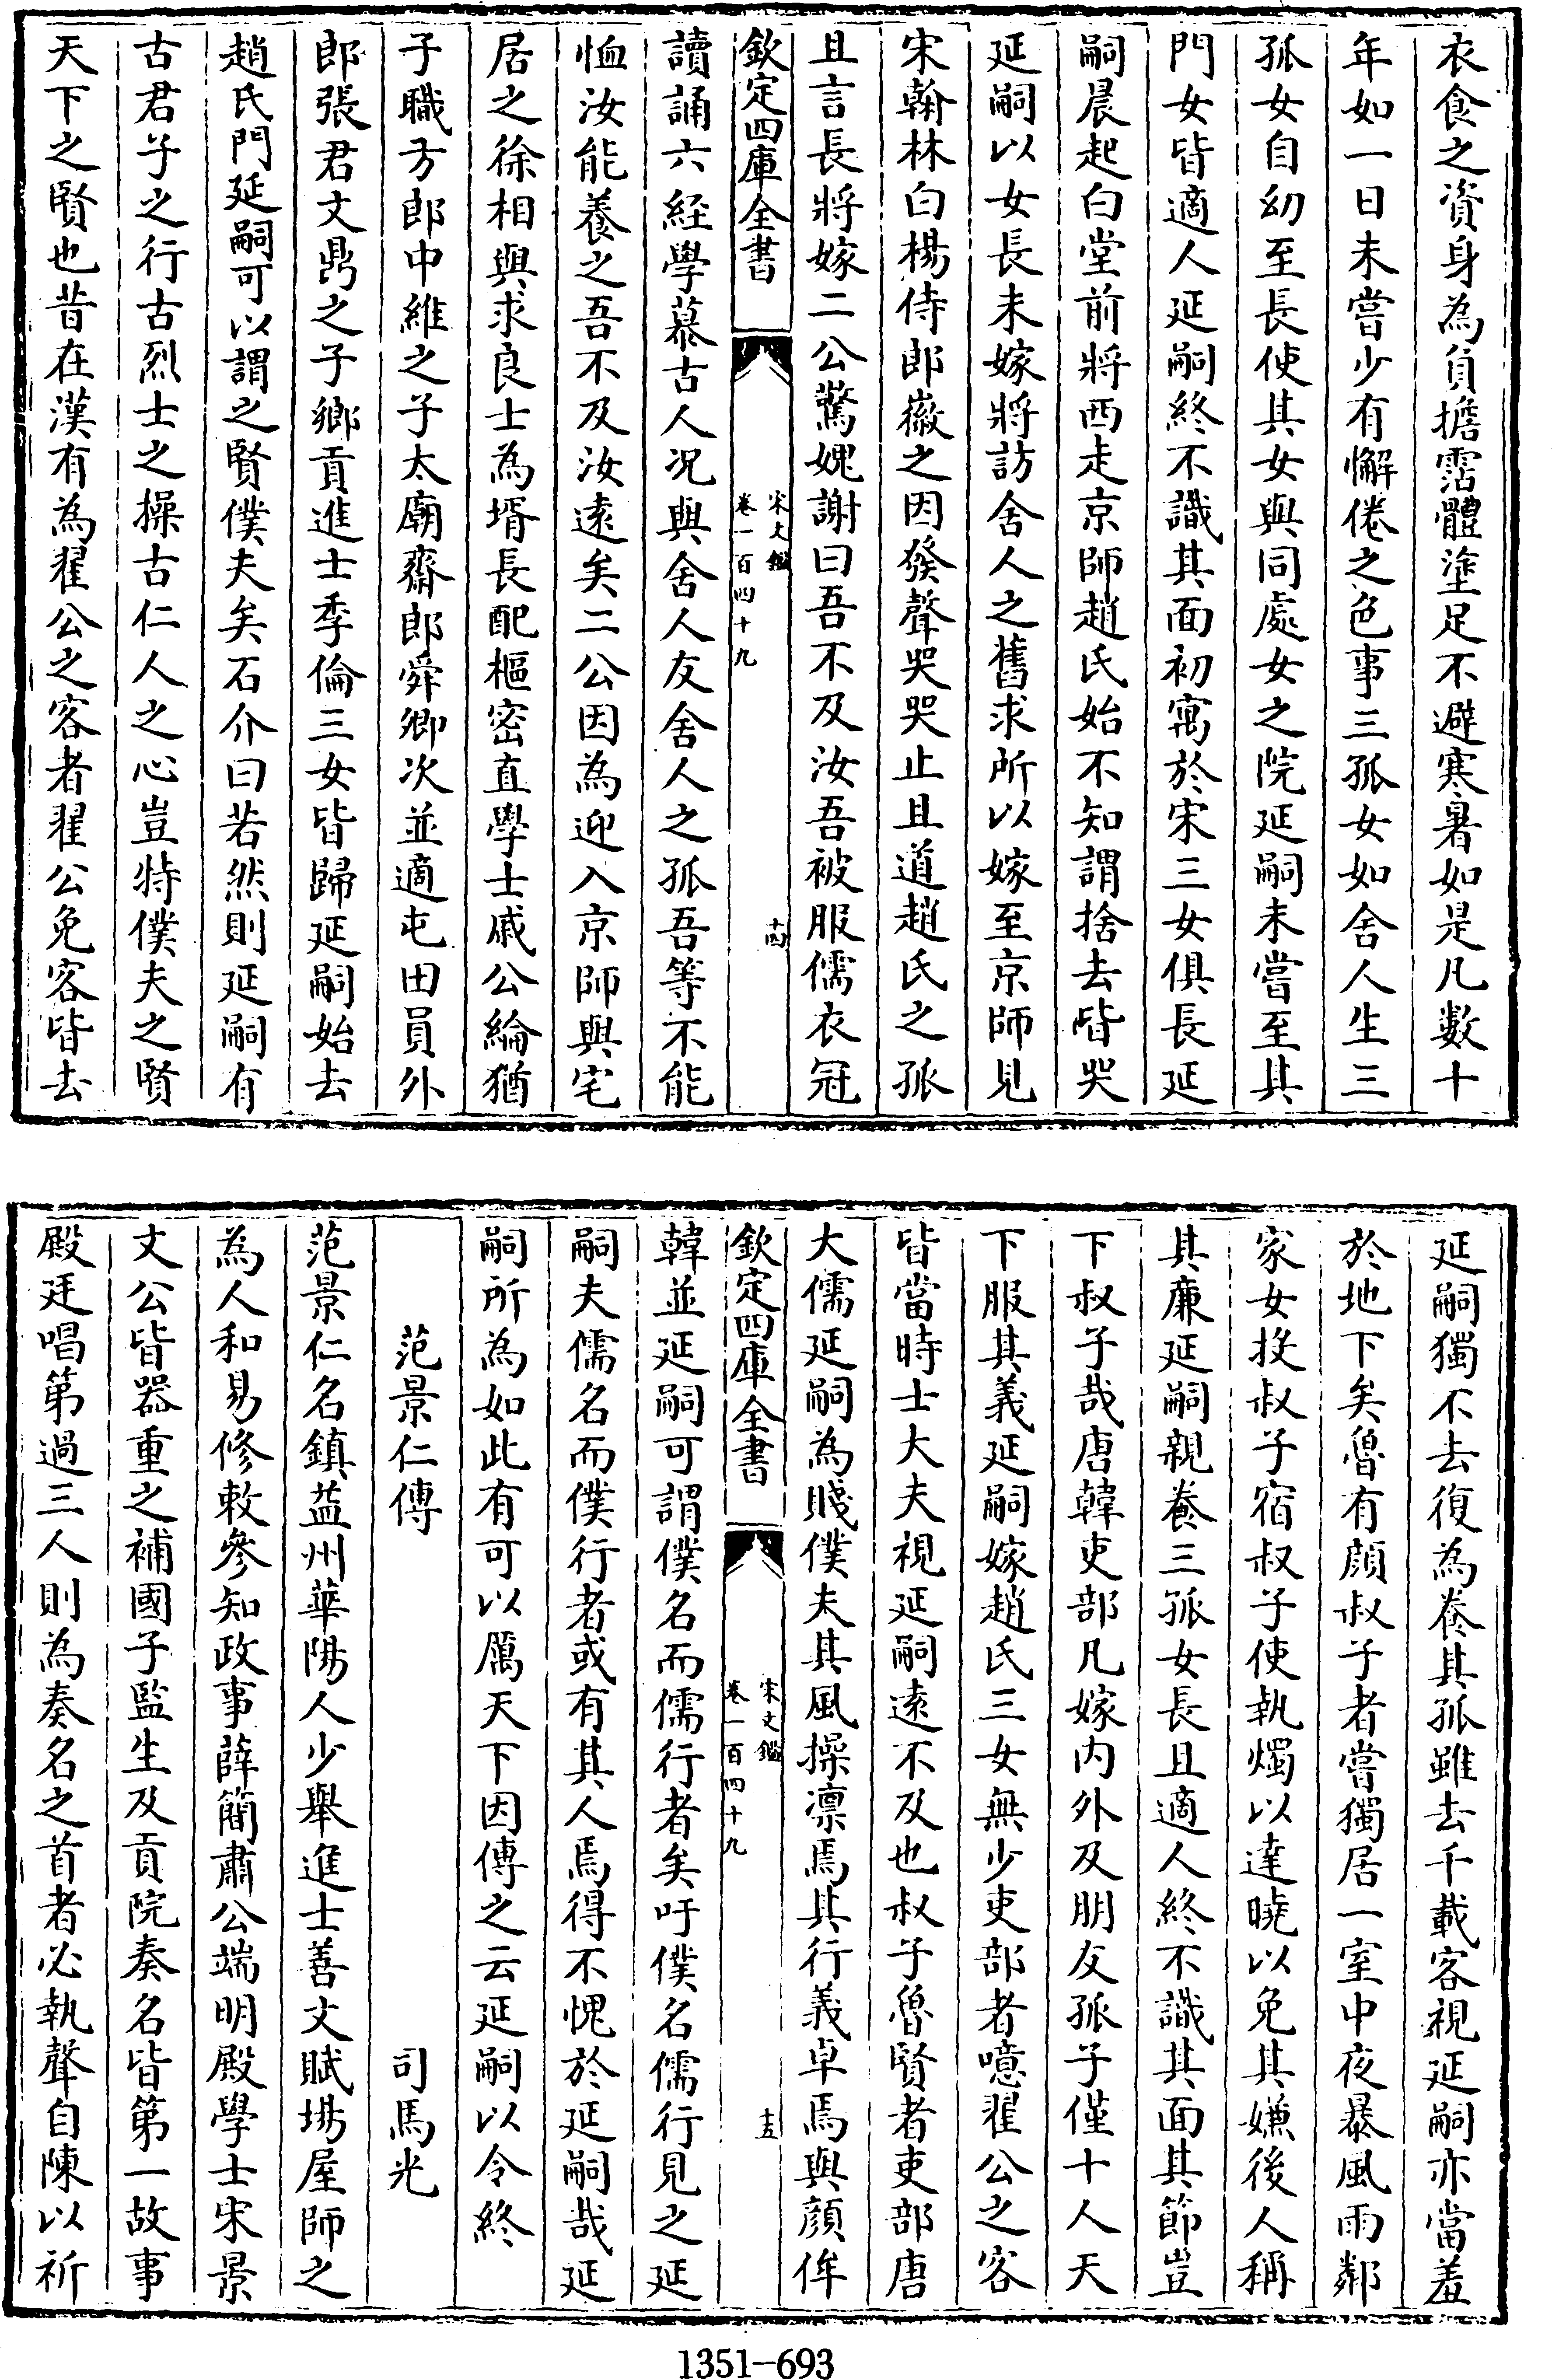 衣食之資身為負擔霑體塗足不避寒暑如是凡數十
年如一日未嘗少有懈倦之色事三孤女如舍人生三
孤女自幼至長使其女與同處女之院延嗣未嘗至其
門女皆適人延嗣終不識其面初寓於宋三女俱長延
嗣晨起白堂前將西走京師趙氏始不知謂捨去皆哭
延嗣以女長未嫁將訪舍人之舊求所以嫁至京師見
宋翰林白楊侍郎徽之因發聲哭哭止且道趙氏之孤
且言長將嫁二公驚媿謝曰吾不及汝吾被服儒衣冠
欽定四庫全書
宋文鑑
卷一百四十九
十四
讀誦六經學慕古人况與舍人友舍人之孤吾等不能
恤汝能養之吾不及汝遠矣二公因為迎入京師與宅
居之徐相與求良士為壻長配樞密直學士戚公綸猶
子職方郎中維之子太廟齋郎舜卿次並適屯田員外
郎張君文鼎之子鄉貢進士季倫三女皆歸延嗣始去
趙氏門延嗣可以謂之賢僕夫矣石介曰若然則延嗣有
古君子之行古烈士之操古仁人之心豈特僕夫之賢
天下之賢也昔在漢有為翟公之客者翟公免客皆去
延嗣獨不去復為養其孤雖去千載客視延嗣亦當羞
於地下矣魯有顔叔子者嘗獨居一室中夜暴風雨鄰
家女投叔子宿叔子使執燭以達曉以免其嫌後人稱
其廉延嗣親養三孤女長且適人終不識其面其節豈
下叔子哉唐韓吏部凡嫁内外及朋友孤子僅十人天
下服其義延嗣嫁趙氏三女無少吏部者噫翟公之客
皆當時士大夫視延嗣遠不及也叔子魯賢者吏部唐
大儒延嗣為賤僕夫其風操凛焉其行義卓焉與顔侔
欽定四庫全書
宋文鑑
卷一百四十九
十五
韓並延嗣可謂僕名而儒行者矣吁僕名儒行見之延
嗣夫儒名而僕行者或有其人焉得不愧於延嗣哉延
嗣所為如此有可以厲天下因傳之云延嗣以令終
范景仁傳　司馬光
范景仁名鎮益州華陽人少舉進士善文賦塲屋師之
為人和易修敕參知政事薛簡肅公端明殿學士宋景
文公皆器重之補國子監生及貢院奏名皆第一故事
殿廷唱第過三人則為奏名之首者必執聲自陳以祈
1351-693